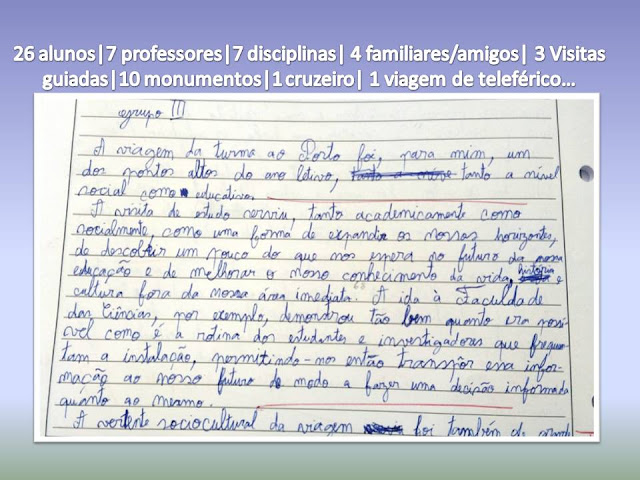 26 alunos|7 professores|7 disciplinas| 4 familiares/amigos| 3 Visitas
guiadas|10 monumentos|1 cruzeiro| 1 viagem de teleférico...
grupo III
A viagem da turma ao Porto foi, para mim, um
dos pontos altos do ano letivo, tanto a nível
social como educativo.
A visita de estudo serviu, tanto academicamente como
socialmente, como uma forma de expandir os nossos horizontes,
de descobrir um pouco do que nos espera no futuro da nossa
educação e de melhorar o nosso conhecimento da vida, história e
cultura fora da nossa área imediata. A ida à Faculdade
das Ciências, por exemplo, demonstrou tão bem quanto era possí-
vel como é a rotina dos estudantes e investigadores que frequen-
tam a instalação, permitindo-nos então transpôr essa infor-
mação ao nosso futuro de modo a fazer uma decisão informada
quanto ao mesmo.
A vertente sociocultural da viagem foi também de